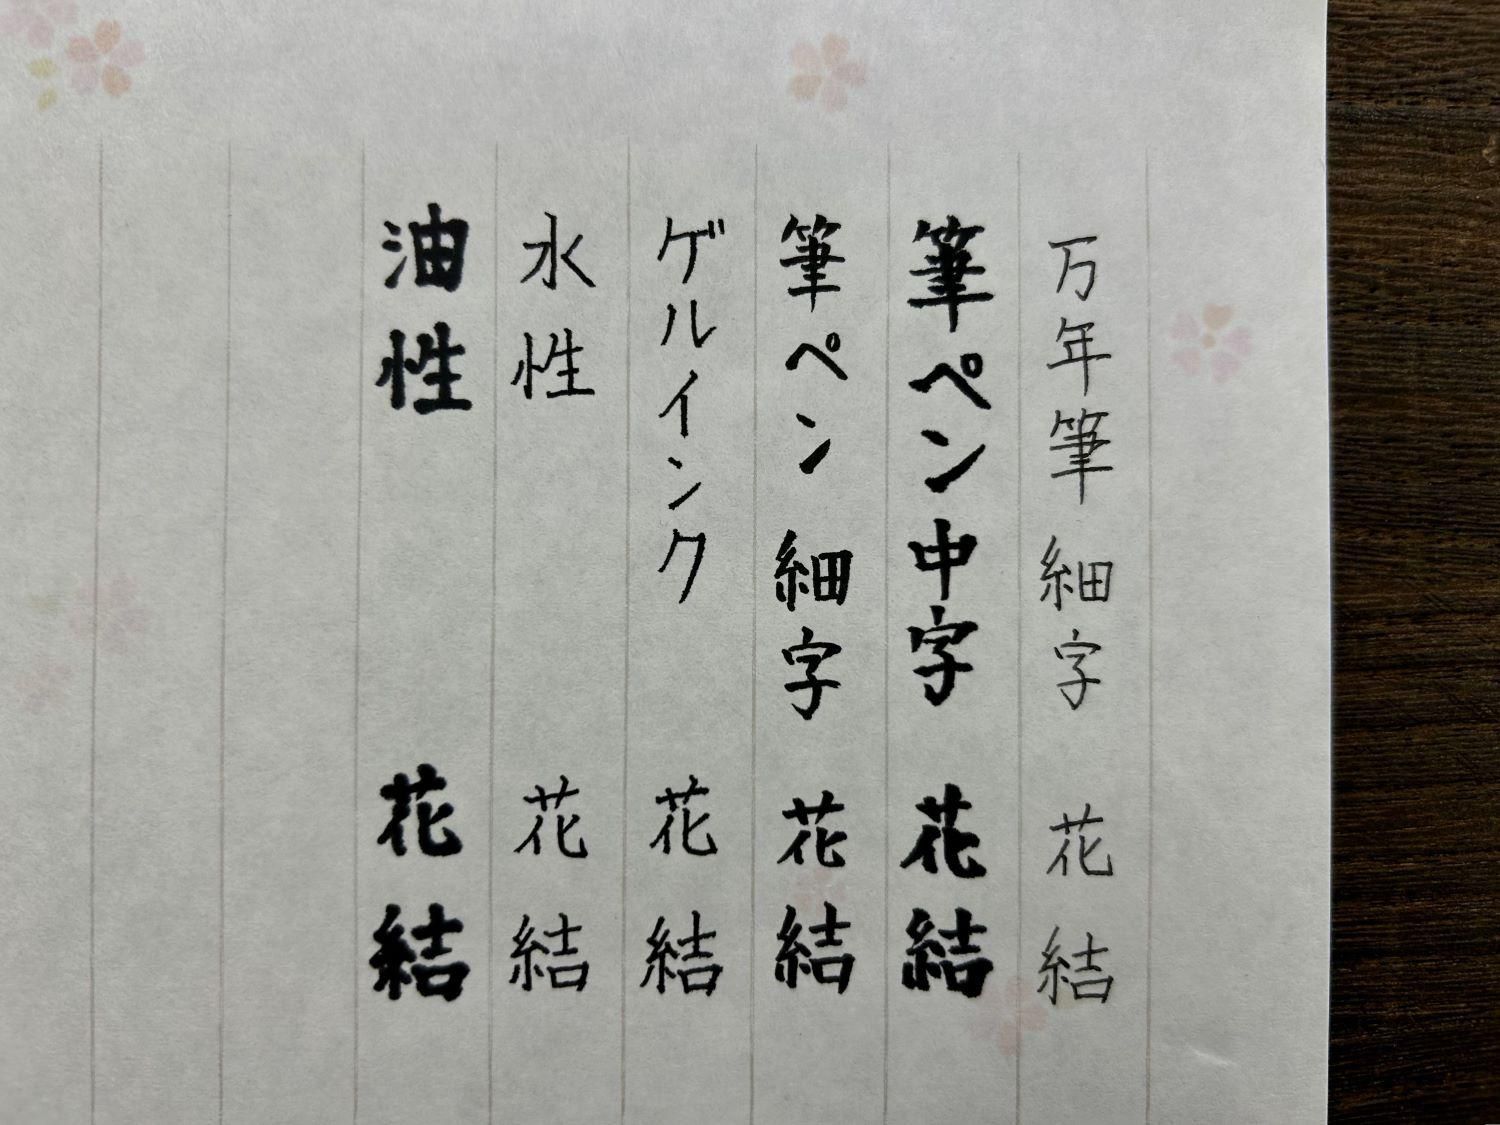 万年筆 細字 花結
筆ペン中字 花結
筆ペン 細字 花結
ゲルインク 花結
水性 花結
油性 花結